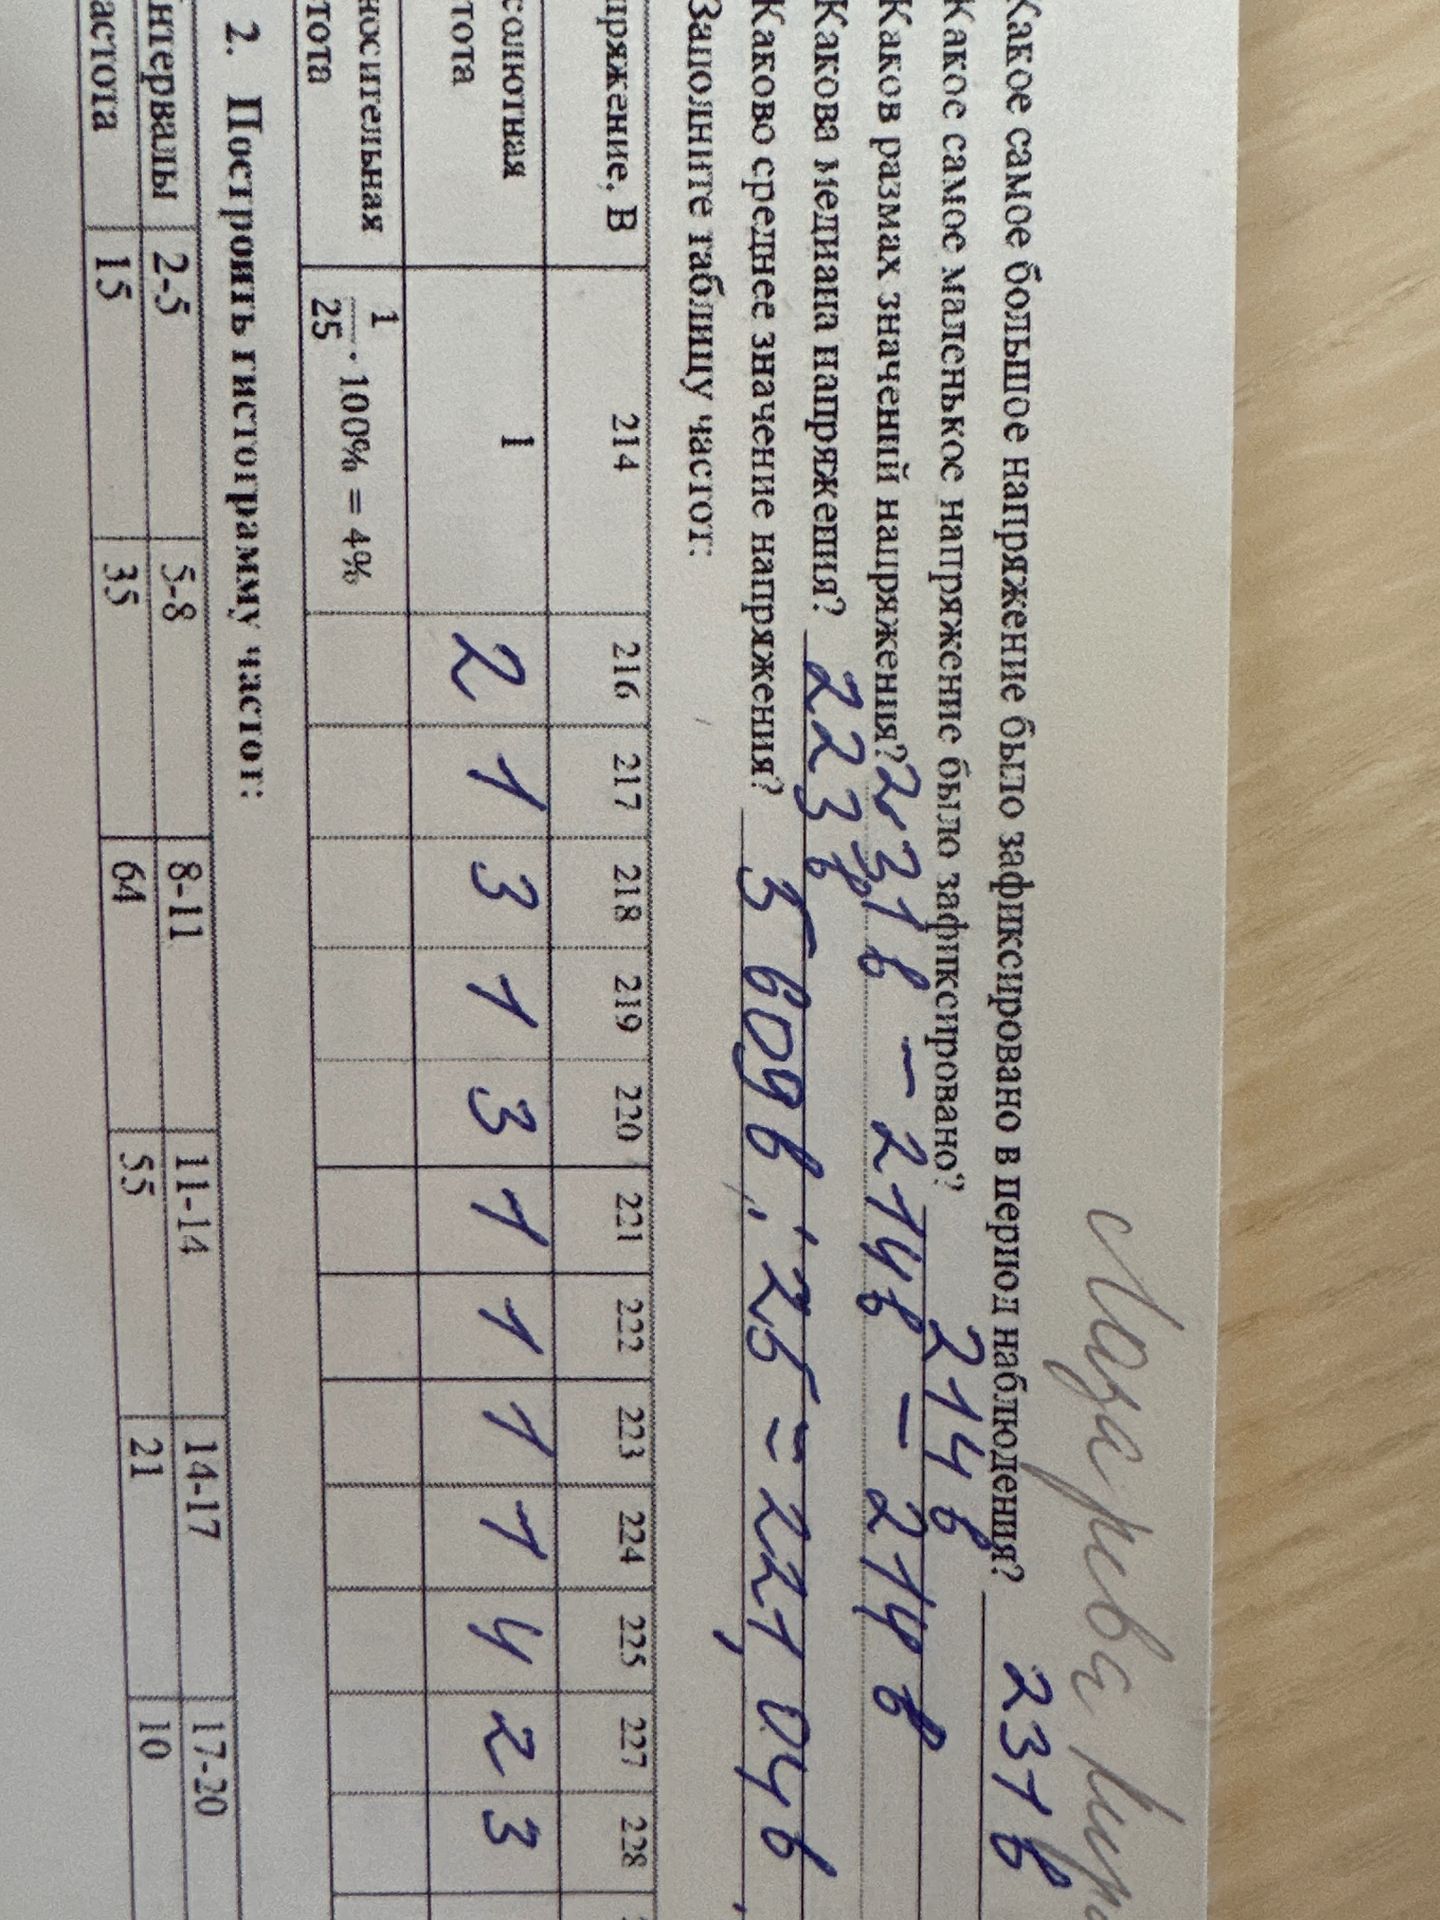 Лазарева Кир
Какое самое большое напряжение было зафиксировано в период наблюдения? 231 в
Какое самое маленькое напряжение было зафиксировано? 214 в
Каков размах значений напряжения? 231 в - 214 в - 214 в
Какова медиана напряжения? 223 в
Каково среднее значение напряжения? 5609 в : 25 = 221,04 в
Заполните таблицу частот:
пряжение, В 214 216 217 218 219 220 221 222 223 224 225 227 228
солютная тота 1 2 1 3 1 3 1 1 1 1 4 2 3
носительная тота 1/25 · 100% = 4%
2. Построить гистограмму частот:
нтервалы 2-5 5-8 8-11 11-14 14-17 17-20
астота 15 35 64 55 21 10